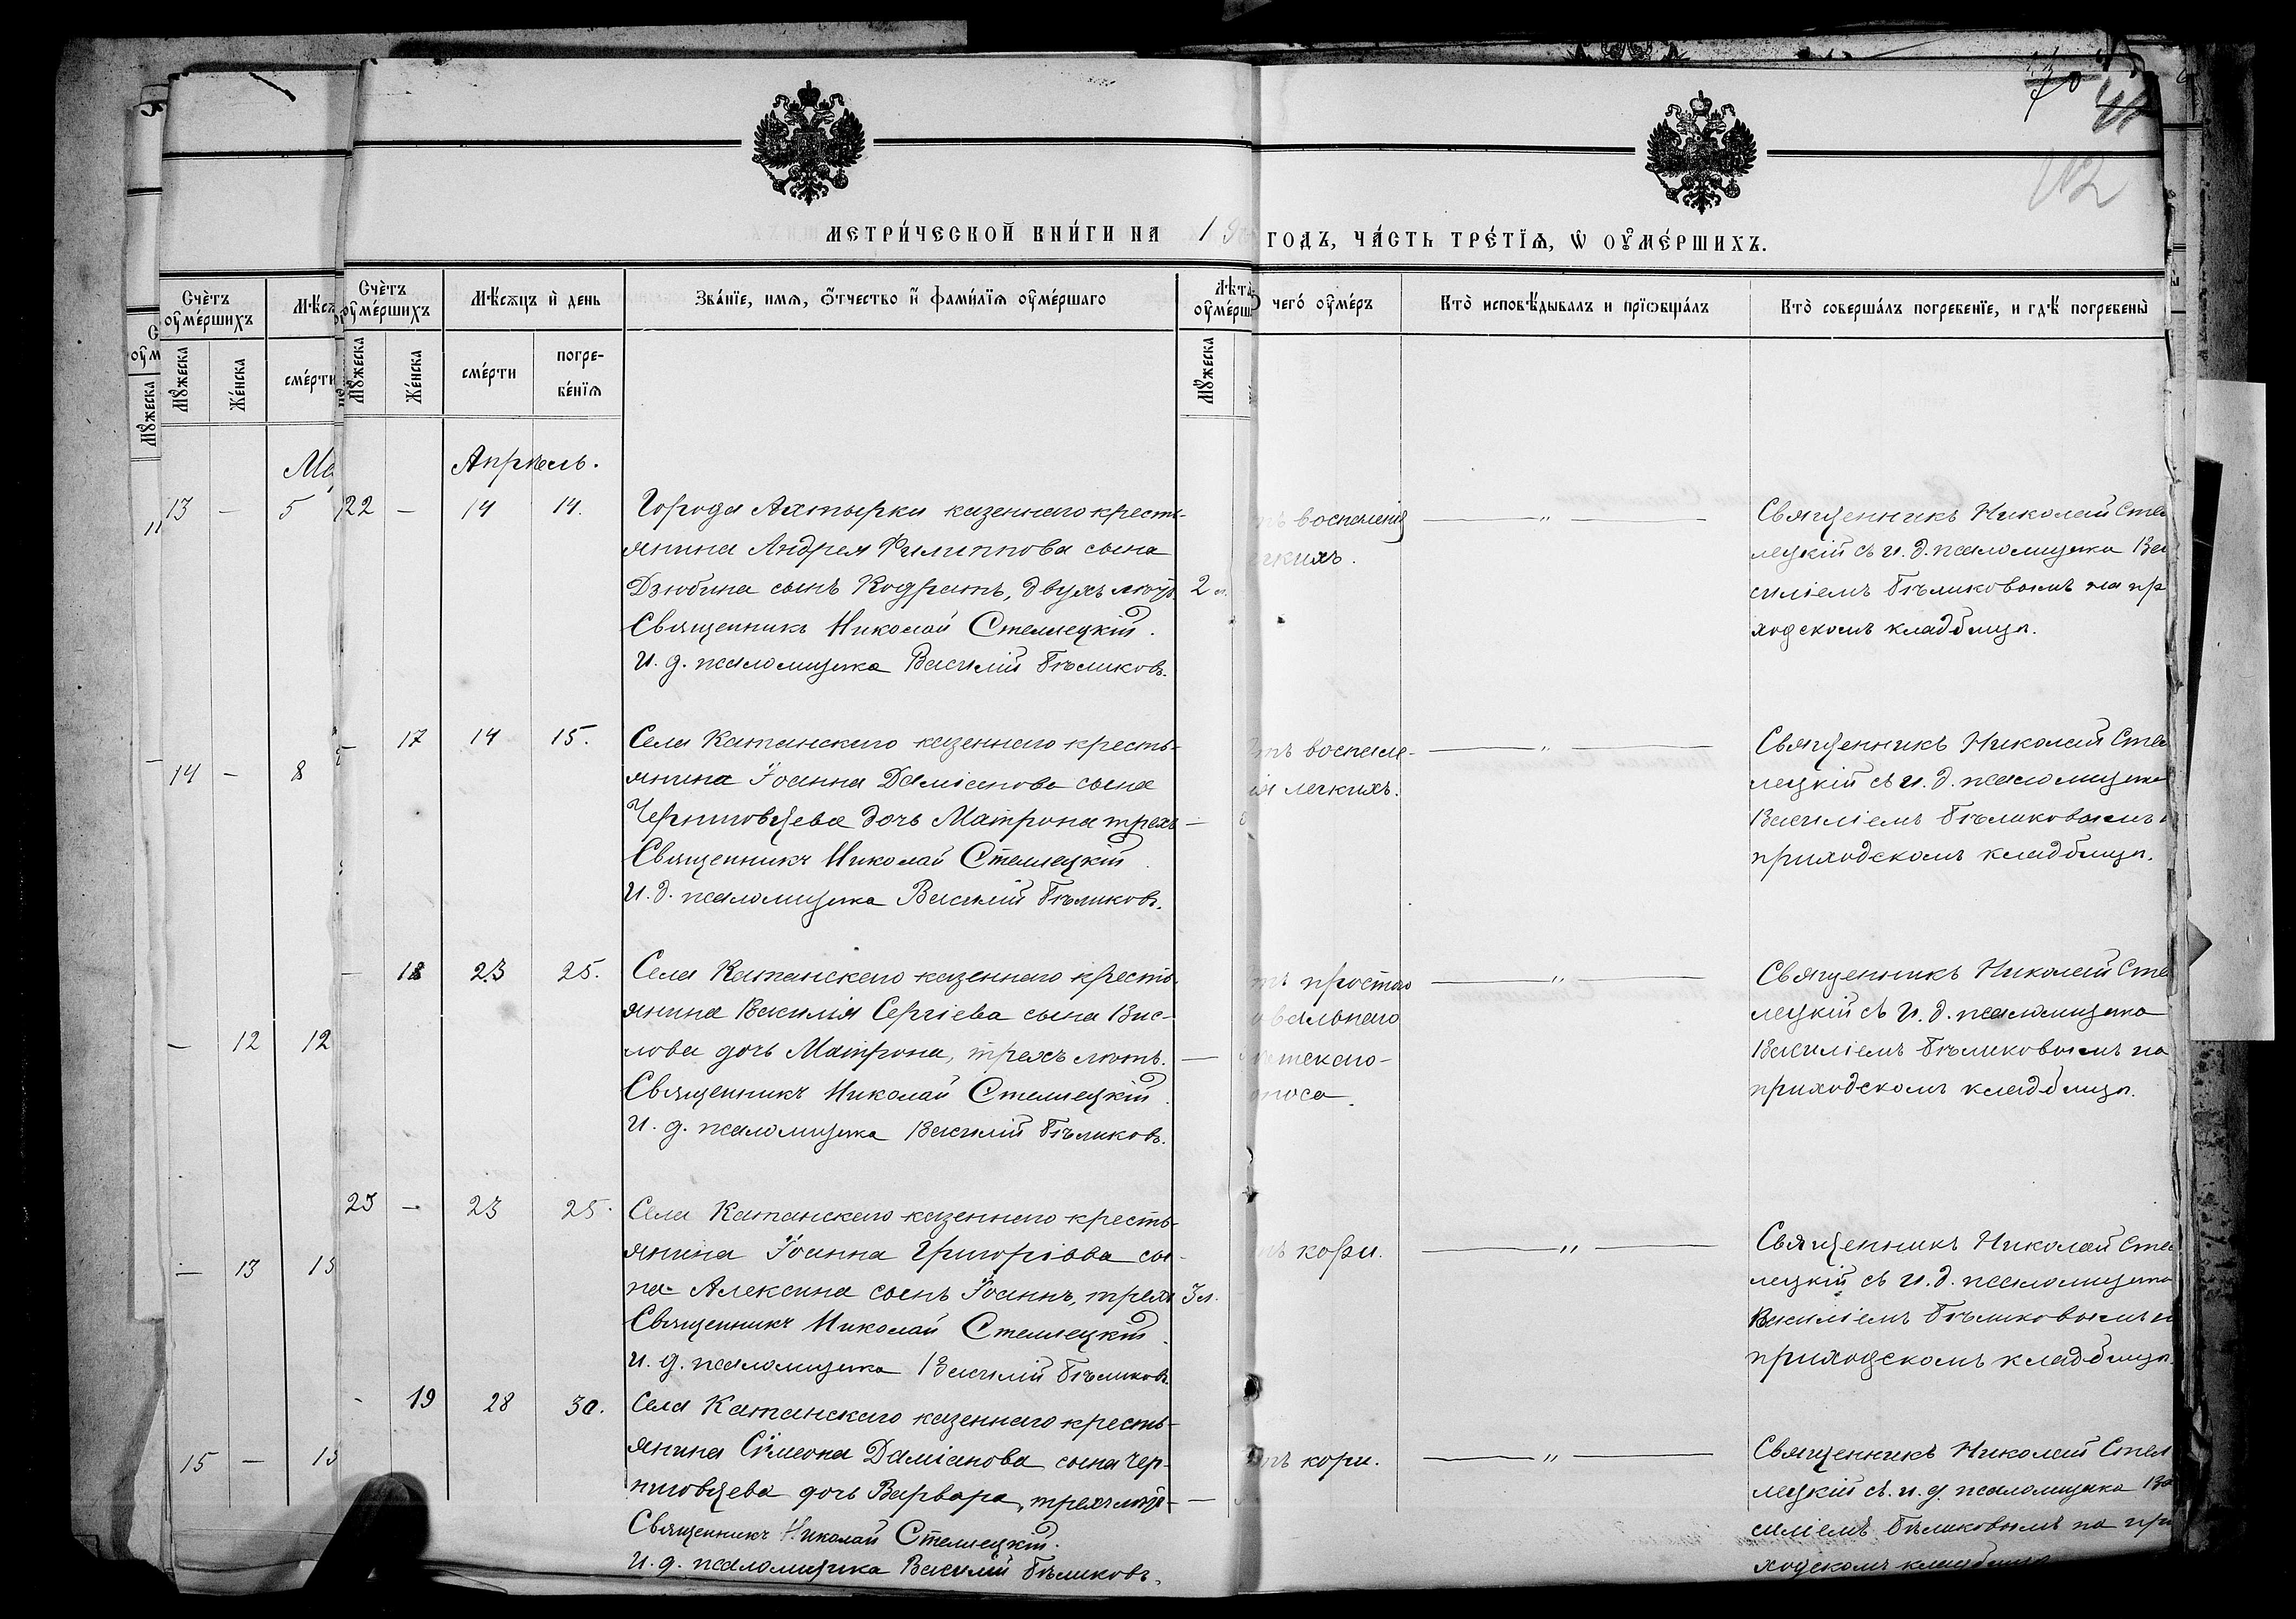 МЕТРИ́ЧЕСКОЙ КНИ́ГИ НА 19
ГОДЪ, ЧА́СТЬ ТРЕ́ТЇѦ, Ѡ ОУМЕ́РШИХЪ.
42
Счѐтъ оумершихъ
Мѣсѧцъ и день
Зва́нїе, имѧ, отчество и фами́лїѧ оумершаго
Лѣта оумерш
чегѡ оумеръ
Кто̀ исповѣдывалъ и прїѡбща́лъ
Кто̀ совершалъ погребенїе, и гдѣ погребены
Мужеска
Же́нска
сме́рти
погре-
бе́нїѧ
Мужеска
Апрѣль.
22 — 14 14.
Города Ахтырки казеннаго кресть-
янина Андрея Филиппова сына
Дзюбина сынъ Кодратъ, двухъ лѣтъ 2 л.
Священникъ Николай Стеллецкій.
И. д. псаломщика Василій Бѣликовъ.
воспаленія
гкихъ.
Священникъ Николай Стел
лецкій съ и. д. псаломщика Ва
силіемъ Бѣликовымъ на пр
ходскомъ кладбищѣ.
— 17 14 15.
Села Катанскаго казеннаго кресть-
янина Іоанна Даміанова сына
Черниговцева дочь Матрона трехъ —
Священникъ Николай Стеллецкій.
И. д. псаломщика Василій Бѣликовъ.
тъ воспале-
ія легкихъ.
Священникъ Николай Стел
лецкій съ и. д. псаломщика
Василіемъ Бѣликовымъ
приходскомъ кладбищѣ.
— 18 23 25.
Села Катанскаго казеннаго кресть-
янина Василія Сергіева сына Вис-
лова дочь Матрона, трехъ лѣтъ. —
Священникъ Николай Стеллецкій.
И. д. псаломщика Василій Бѣликовъ.
тъ простаго
овальнаго
тскаго
оноса.
Священникъ Николай Сте
лецкій съ и. д. псаломщика
Василіемъ Бѣликовымъ на
приходскомъ кладбищѣ.
23 — 23 25.
Села Катанскаго казеннаго кресть-
янина Іоанна Григоріева сы-
на Алексина сынъ Іоаннъ, трехъ 3 л.
Священникъ Николай Стеллецкій.
И. д. псаломщика Василій Бѣликовъ.
тъ кори.
Священникъ Николай Стел
лецкій съ и. д. псаломщика
Василіемъ Бѣликовымъ н
приходскомъ кладбищѣ.
- 19 28 30.
Села Катанскаго казеннаго кресть-
янина Сѵмеона Даміанова сына Чер-
ниговцева дочь Варвара, трехъ лѣтъ —
Священникъ Николай Стеллецкій.
И. д. псаломщика Василій Бѣликовъ.
тъ кори.
Священникъ Николай Стел
лецкій съ и. д. псаломщика Ва
силіемъ Бѣликовымъ на при
ходскомъ кладбищѣ
Счѐтъ оумершихъ
Мужеска
Же́нска
сме́рти
13 — 5
14 — 8
— 12 12
— 13 13
15 — 13